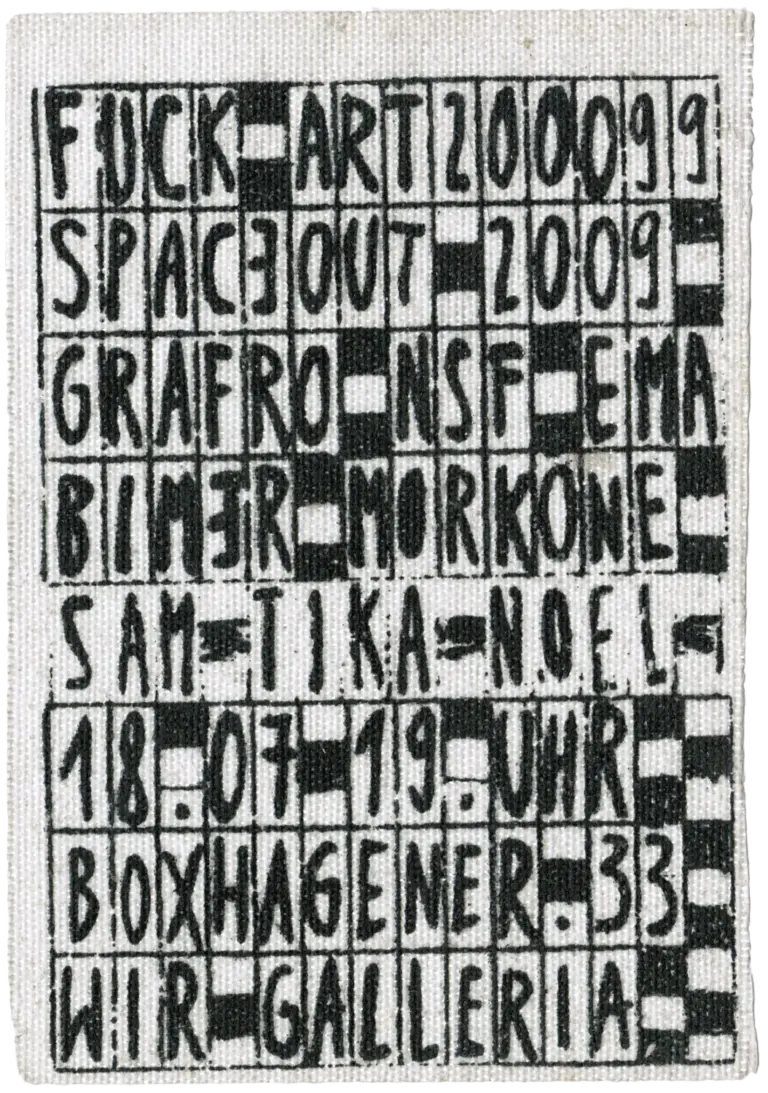 FUCK ART 200099
SPACEOUT 2009
GRAFRO NSF EMA
BIMER MORKONE
SAM TIKA NOEL
18.07 19.UHR
BOXHAGENER.33
WIR GALLERIA